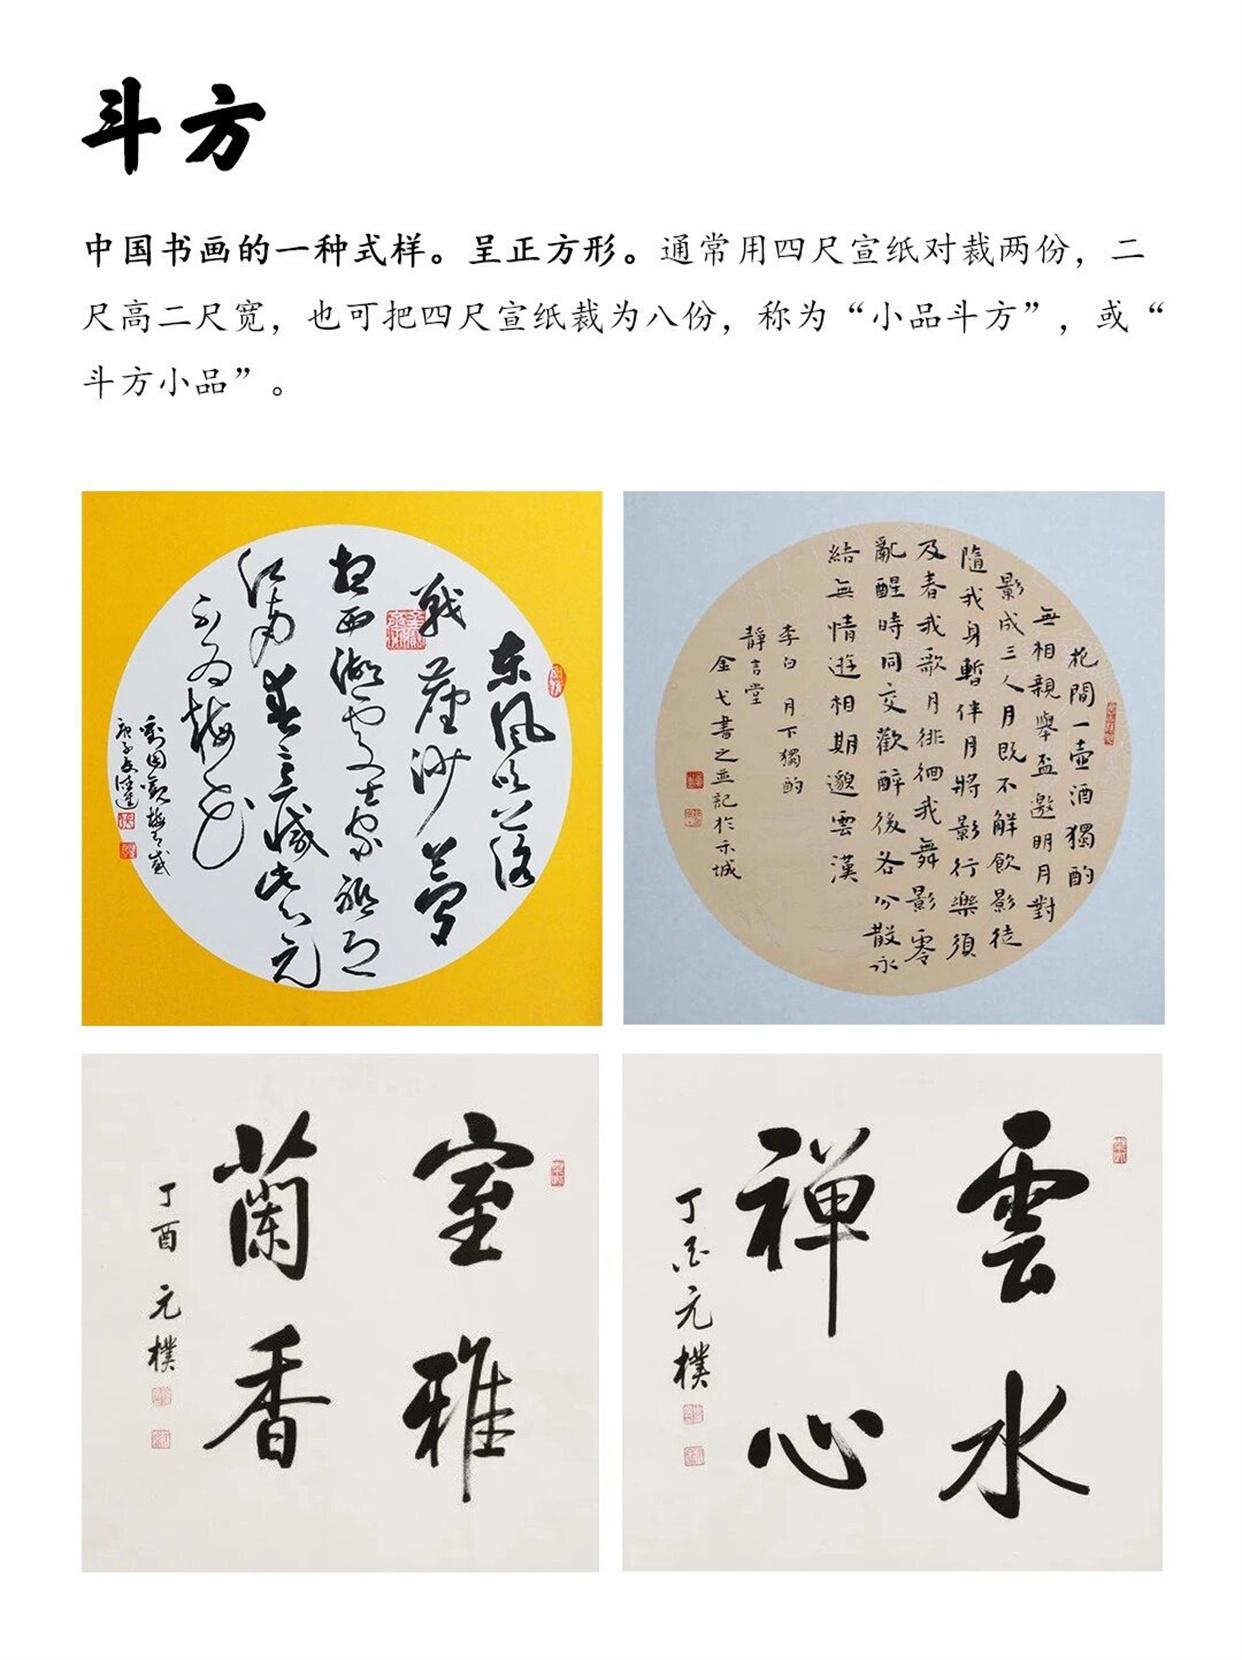 斗方
中国书画的一种式样。呈正方形。通常用四尺宣纸对裁两份，二
尺高二尺宽，也可把四尺宣纸裁为八份，称为“小品斗方”，或“
斗方小品”。
东风吹落
战尘沙梦
想西湖处士家
江南春意减此心元
不为梅花
花間一壺酒獨酌
無相親舉盃邀明月對
影成三人月既不解飲影徒
隨我身暫伴月將影行樂須
及春我歌月徘徊我舞影零
亂醒時同交歡醉後各分散永
結無情遊相期邈雲漢
李白 月下獨酌
靜言堂
金弋書之並記於禾城
室雅
蘭香
丁酉元樸
雲水
禅心
丁酉元樸